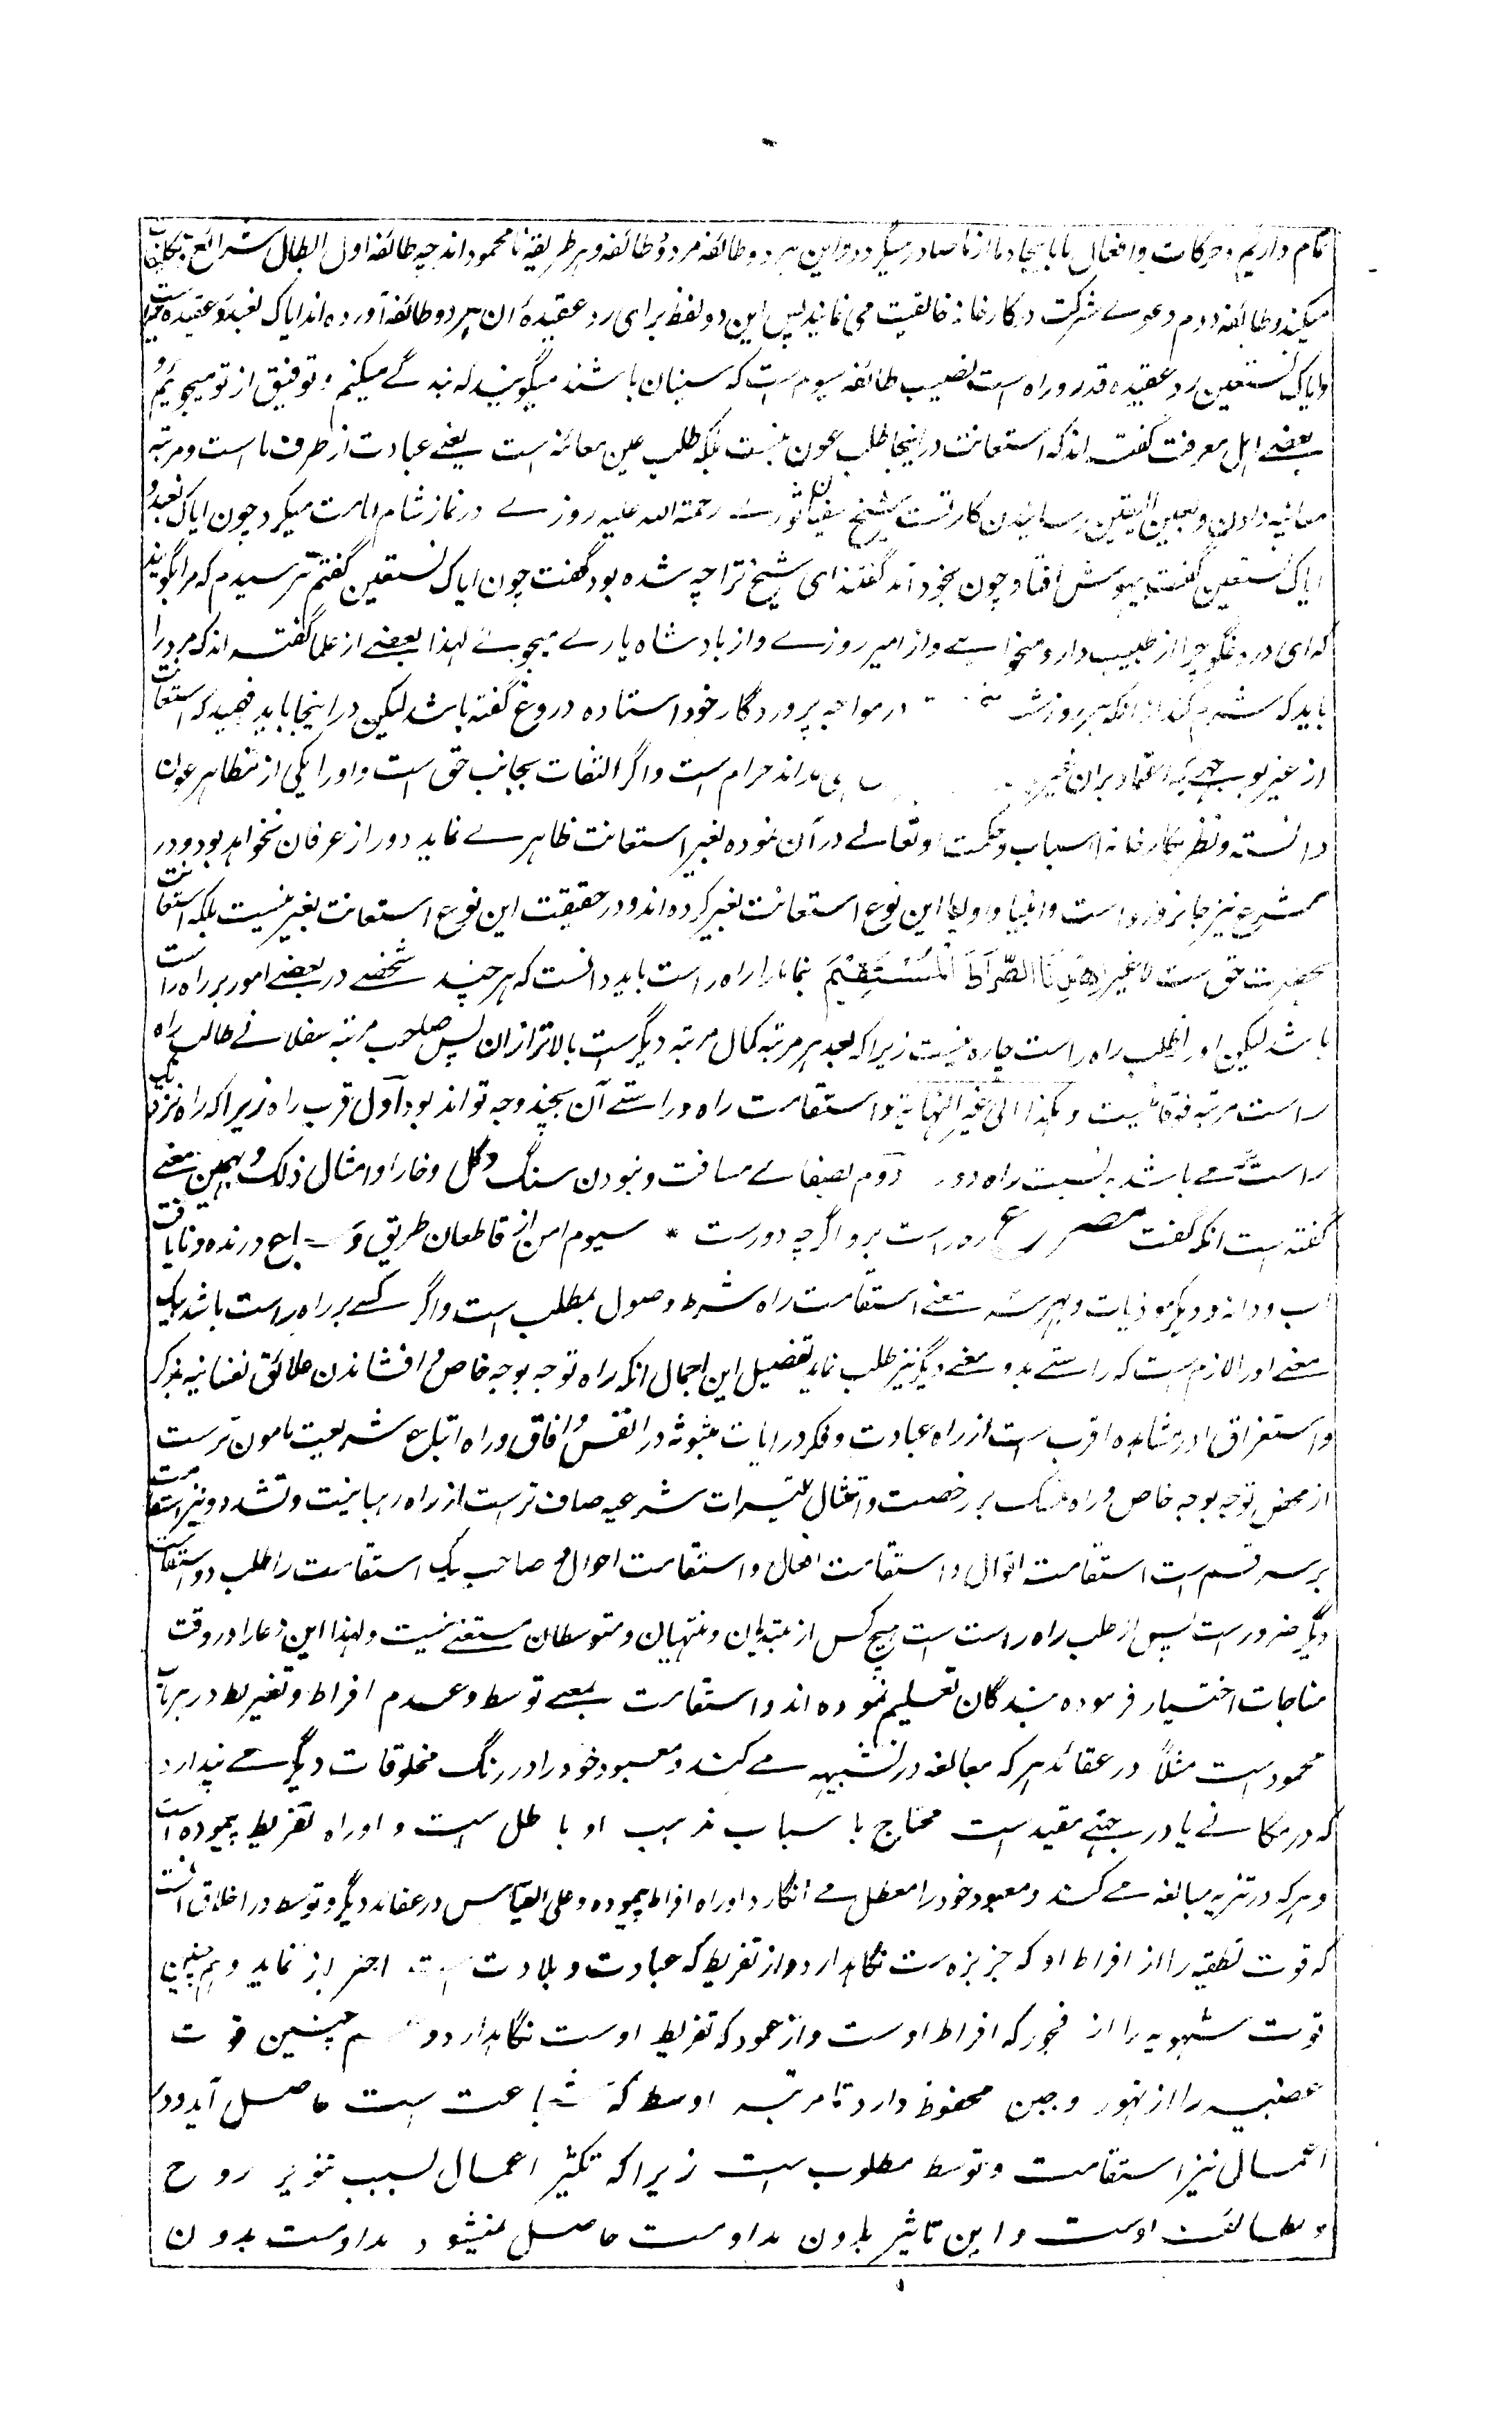 تمام داریم و حرکات و افعال ما بایجاد ما از ما صادر میگردد و این هر دو طائفه مردود طائفه و هر طریقه نامحمود اند چه طائفه اول ابطال شرائع و تکالیف
میکنند و طائفه دوم دعوے شرکت در کارخانه خالقیت می نمایند پس این دو لفظ برای رد عقیدهٔ ان هر دو طائفه آورده اند ایاک نعبد رد عقیده جبر است
وایاک نستعین رد عقیده قدر و راه راست نصیب طائفه سیوم است که سنیان باشند میگویند که بندگے میکنیم و توفیق از تو میجوئیم و
بعضے اهل معرفت گفته اند که استعانت در اینجا طلب عون نیست بلکه طلب عین معائنه است یعنے عبادت از طرف ما است و مرتبه
معائنه دادن و بعین الیقین رسانیدن کار تست شیخ سفیان ثورے رحمته الله علیه روزے در نماز شام امامت میکرد چون ایاک نعبد و
ایاک نستعین گفت بیهوش افتاد چون بخود آمد گفتند ای شیخ ترا چه شده بود گفت چون ایاک نستعین گفتم ترسیدم که مرا بگویند
که ای دروغگو چرا از طبیب دارو میخواهے و از امیر روزے و از بادشاه یارے میجوئے لهذا بعضے از علما گفته اند که مرد را
باید که شرم کند از انکه هر روز و شب در مواجه پروردگار خود استاده دروغ گفته باشد لیکن در اینجا باید فهمید که استعانت
از غیر بوجهے که اعتماد بران غیر حرام است و اگر التفات بجانب حق است و او را یکی از مظاهر عون
دانسته و نظر بکارخانه اسباب و حکمت او تعالے در آن نموده بغیر استعانت ظاهرے نماید دور از عرفان نخواهد بود و در
شرع نیز جائز و روا است و انبیا و اولیا این نوع استعانت بغیر کرده اند و در حقیقت این نوع استعانت بغیر نیست بلکه استعانت
بحضرت حق ست لا غیر اِهْدِنَا الصِّرَاطَ الْمُسْتَقِیْمَ بنما ما را راه راست باید دانست که هر چند شخصے در بعضے امور بر راه راست
باشد لیکن او را طلب راه راست چاره نیست زیرا که بعد هر مرتبه کمال مرتبه دیگرست بالاتر از ان پس صاحب مرتبه سفلانے طالب راه
راست مرتبه فوقانیست و هکذا الی غیر النهایة و استقامت راه و راستے آن بچند وجه تواند بود اول قرب راه زیرا که راه نزدیک
راست مے باشد به نسبت راه دور دوم بصفاے مسافت و نبودن سنگ و گل و خار و امثال ذلک و بهمین معنے
گفته است انکه گفت مصرع ره راست برو اگرچه دورست * سیوم امن از قاطعان طریق و سباع درنده و نایافت
اب و دانه و دیگر موذیات و هر سه معنے استقامت راه شرط وصول بمطلب است و اگر کسے بر راه راست باشد بیک
معنے او را لازم است که راستے بدو معنے دیگر نیز طلب نماید تفصیل این اجمال انکه راه توجه بوجه خاص و افشاندن علائق نفسانیه بذکر
و استغراق در مشاهده اقرب ست از راه عبادت و فکر در ایات مبثوثه در انفس و افاق و راه اتباع شریعت مامون ترست
از محض توجه بوجه خاص و راه تمسک بر رخصت و امتثال تیسیرات شرعیه صاف ترست از راه رهبانیت و تشدد و نیز استقامت
بر سه قسم است استقامت اقوال و استقامت افعال و استقامت احوال و صاحب یک استقامت را طلب دو استقامت
دیگر ضرورست پس از طلب راه راست هیچ کس از مبتدیان و منتهیان و متوسطان مستغنے نیست و لهذا این دعا را در وقت
مناجات اختیار فرموده بندگان تعلیم نموده اند و استقامت بمعنے توسط و عدم افراط و تفریط در هر باب
محمودست مثلاً در عقائد هر که مبالغه در تشبیهه مے کند و معبود خود را در رنگ مخلوقات دیگر مے پندارد
که در مکانے یا در جهتے مقیدست محتاج باسباب مذهب او باطل ست و او راه تفریط پیموده است
و هر که در تنزیه مبالغه مے کند و معبود خود را معطل مے انگارد او راه افراط پیموده و علی القیاس در عقائد دیگر و توسط در اخلاق انست
که قوت نطقیه را از افراط او که جزبزه ست نگاهدارد و از تفریط که عبادت و بلادت ست احتراز نماید و همچنین
قوت شهویه را از فجور که افراط اوست و از خمود که تفریط اوست نگاهدارد و همچنین قوت
غضبیه را از تهور و جبن محفوظ دارد تا مرتبه اوسط که شجاعت ست حاصل آید و در
اعمال نیز استقامت و توسط مطلوب ست زیرا که تکثیر اعمال بسبب تنویر روح
و لطائف اوست و این تاثیر بدون مداومت حاصل نمیشود و مداومت بدون